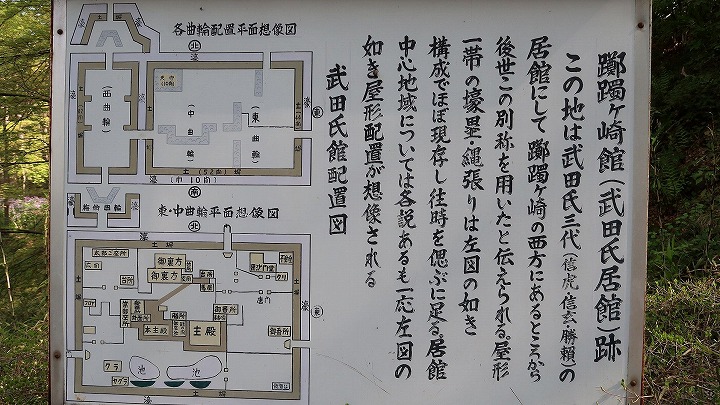 躑躅ヶ崎館(武田氏居館)跡
この地は武田氏三代(信虎 信玄 勝頼)の
居館にして 躑躅ヶ崎の西方にあるところから
後世この別称を用いたと伝えられる。屋形
一帯の壕塁・縄張りは左図の如き
構成でほぼ現存し往時を偲ぶに足る。居館
中心地域については各説あるも一応左図の
如き屋形配置が想像される
武田氏館配置図
各曲輪配置平面想像図
北
濠
土塀
(西曲輪)
(中曲輪)
(東曲輪)
東
土塀
濠
(巾10間)
南
梅翁曲輪
東・中曲輪平面想像図
北
濠
土塀
御裏方
御裏方
台所
唐門
本主殿
主殿
御番所
御番所
東
クラ
池
池
ヤグラ
土塀
濠